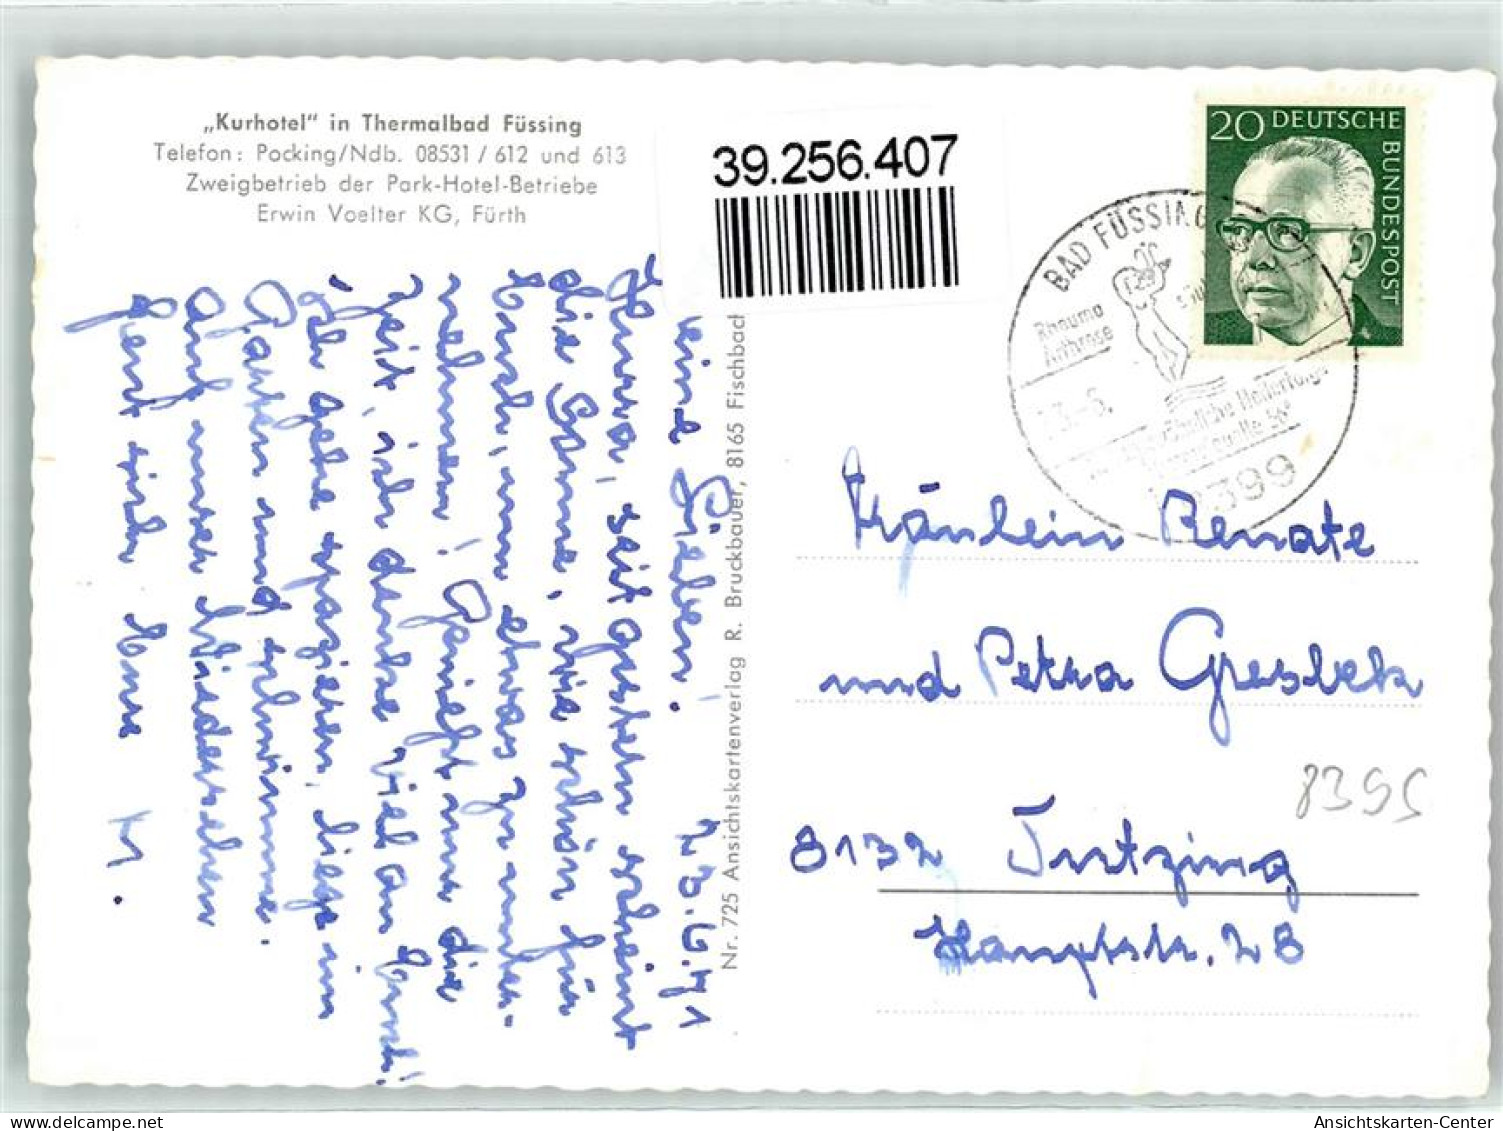 „Kurhotel" in Thermalbad Füssing
Telefon: Pocking/Ndb. 08531 / 612 und 613
Zweigbetrieb der Park-Hotel-Betriebe
Erwin Voelter KG, Fürth
39.256.407
20 DEUTSCHE
BUNDESPOST
BAD FÜSSING
Rheuma
Arthrose
8399
Nr. 725 Ansichtskartenverlag R. Bruckbauer, 8165 Fischbach
eine Lieben! 23.6.71
Hurra, seit gestern scheint
die Sonne, wie schön für
Euch, nun etwas zu unter-
nehmen! Genießt nur die
Zeit, ich denke viel an Euch!
Ich gehe spazieren, liege im
Garten und schwimme.
Auf unser Wiedersehen
freut sich Eure M.
Fräulein Renate
und Petra Greslek
8132 Tutzing
Hauptstr. 28
8395
Ansichtskarten-Center